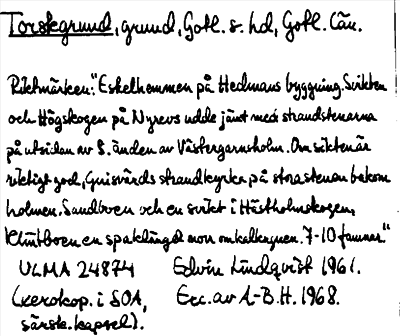 Torskgrund, grund, Gotl. s. hd, Gotl. län.
Riktmärken: "Eskelhemmen på Hedmans byggning. Svikten
och Högskogen på Nyrevs udde jämt med strandstenarna
på utsidan av S. änden av Västergarnsholm. Om sikten är
riktigt god, Gnisvärds strandkyrka på storastenen bakom
holmen. Sandboen och en svikt i Hästholmskogen,
Klintboen en spaklängd norr om kalkugnen. 7-10 famnar."
ULMA 24874 Edvin Lindqvist 1961.
(xerokop. i SOA, Exc. av A-B. H. 1968.
särsk. kapsel).